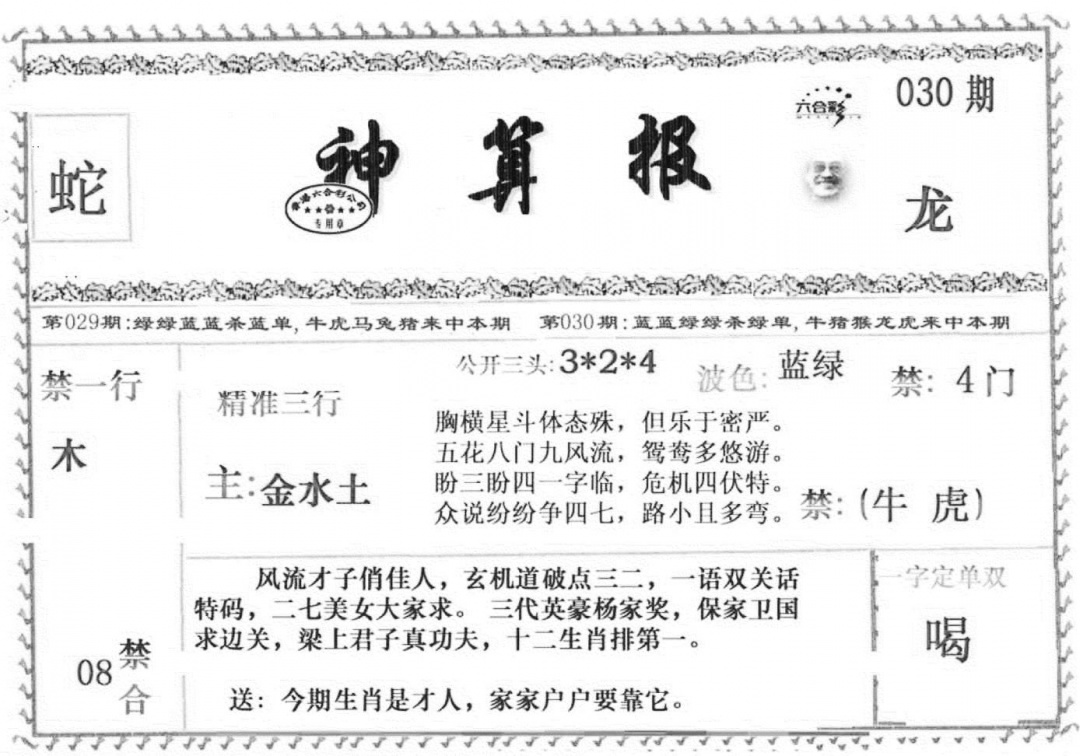 030 期
六合彩
蛇
神算报
香港六合彩公司
专用章
龙
第029期:绿绿蓝蓝杀蓝单,牛虎马兔猪来中本期 第030期:蓝蓝绿绿杀绿单,牛猪猴龙虎来中本期
禁一行
木
精准三行
主:金水土
公开三头:3*2*4 波色:蓝绿 禁: 4门
胸横星斗体态殊，但乐于密严。
五花八门九风流，鸳鸯多悠游。
盼三盼四一字临，危机四伏特。
众说纷纷争四七，路小且多弯。
禁:(牛 虎)
08禁合
风流才子俏佳人，玄机道破点三二，一语双关话
特码，二七美女大家求。 三代英豪杨家奖，保家卫国
求边关，梁上君子真功夫，十二生肖排第一。
送：今期生肖是才人，家家户户要靠它。
一字定单双
喝